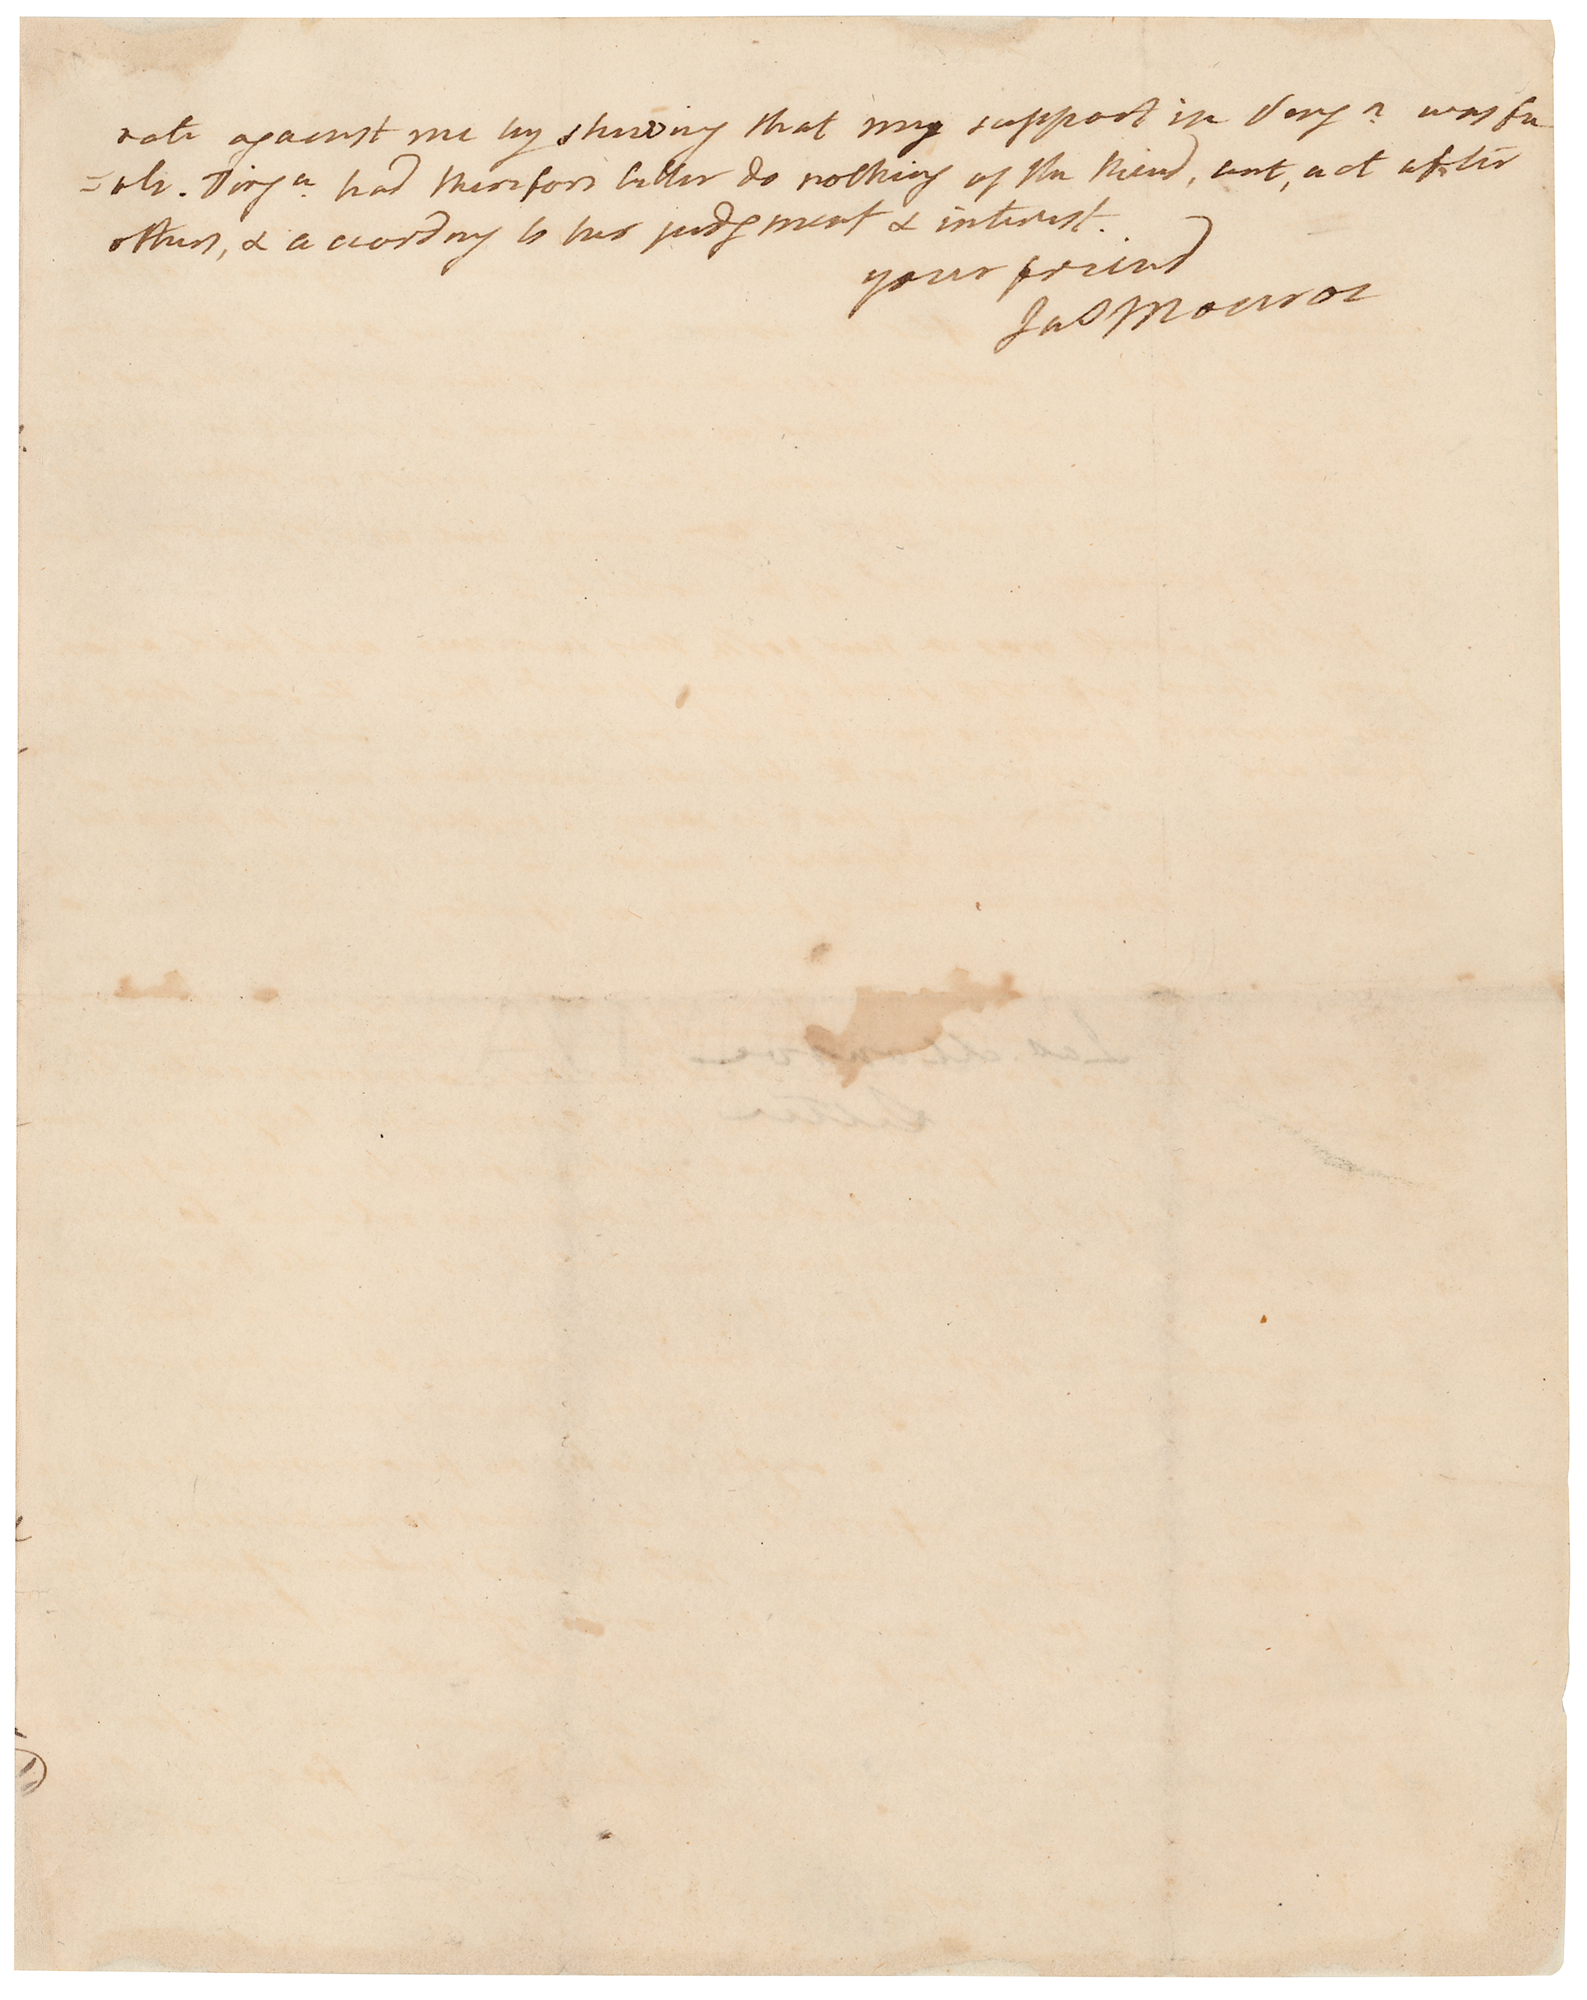 rate against me by shewing that my support in Virga was fee
=ble. Virga had therefore better do nothing of the kind, but, act after
others, & according to her judgment & interest.
your friend
Jas Monroe